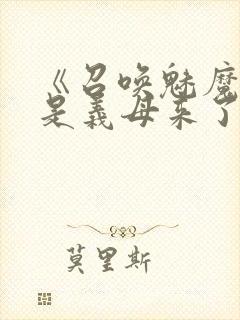 《召唤魅魔
是义母来了
莫里斯